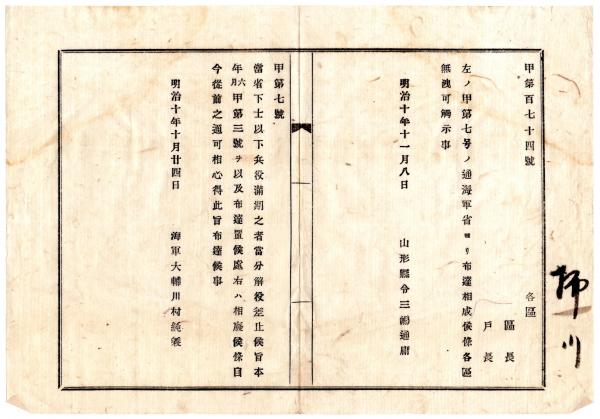 甲第百七十四號
各區
區長
戸長
左ノ甲第七号ノ通海軍省ヨリ布達相成候條各區
無洩可觸示事
明治十年十一月八日
山形縣令三嶋通庸
甲第七號
當省下士以下兵役滿期之者當分解役差止候旨本
年六月甲第三號ヲ以及布達置候處右ハ相廢候條自
今從前之通可相心得此旨布達候事
明治十年十月廿四日
海軍大輔川村純義
柳川